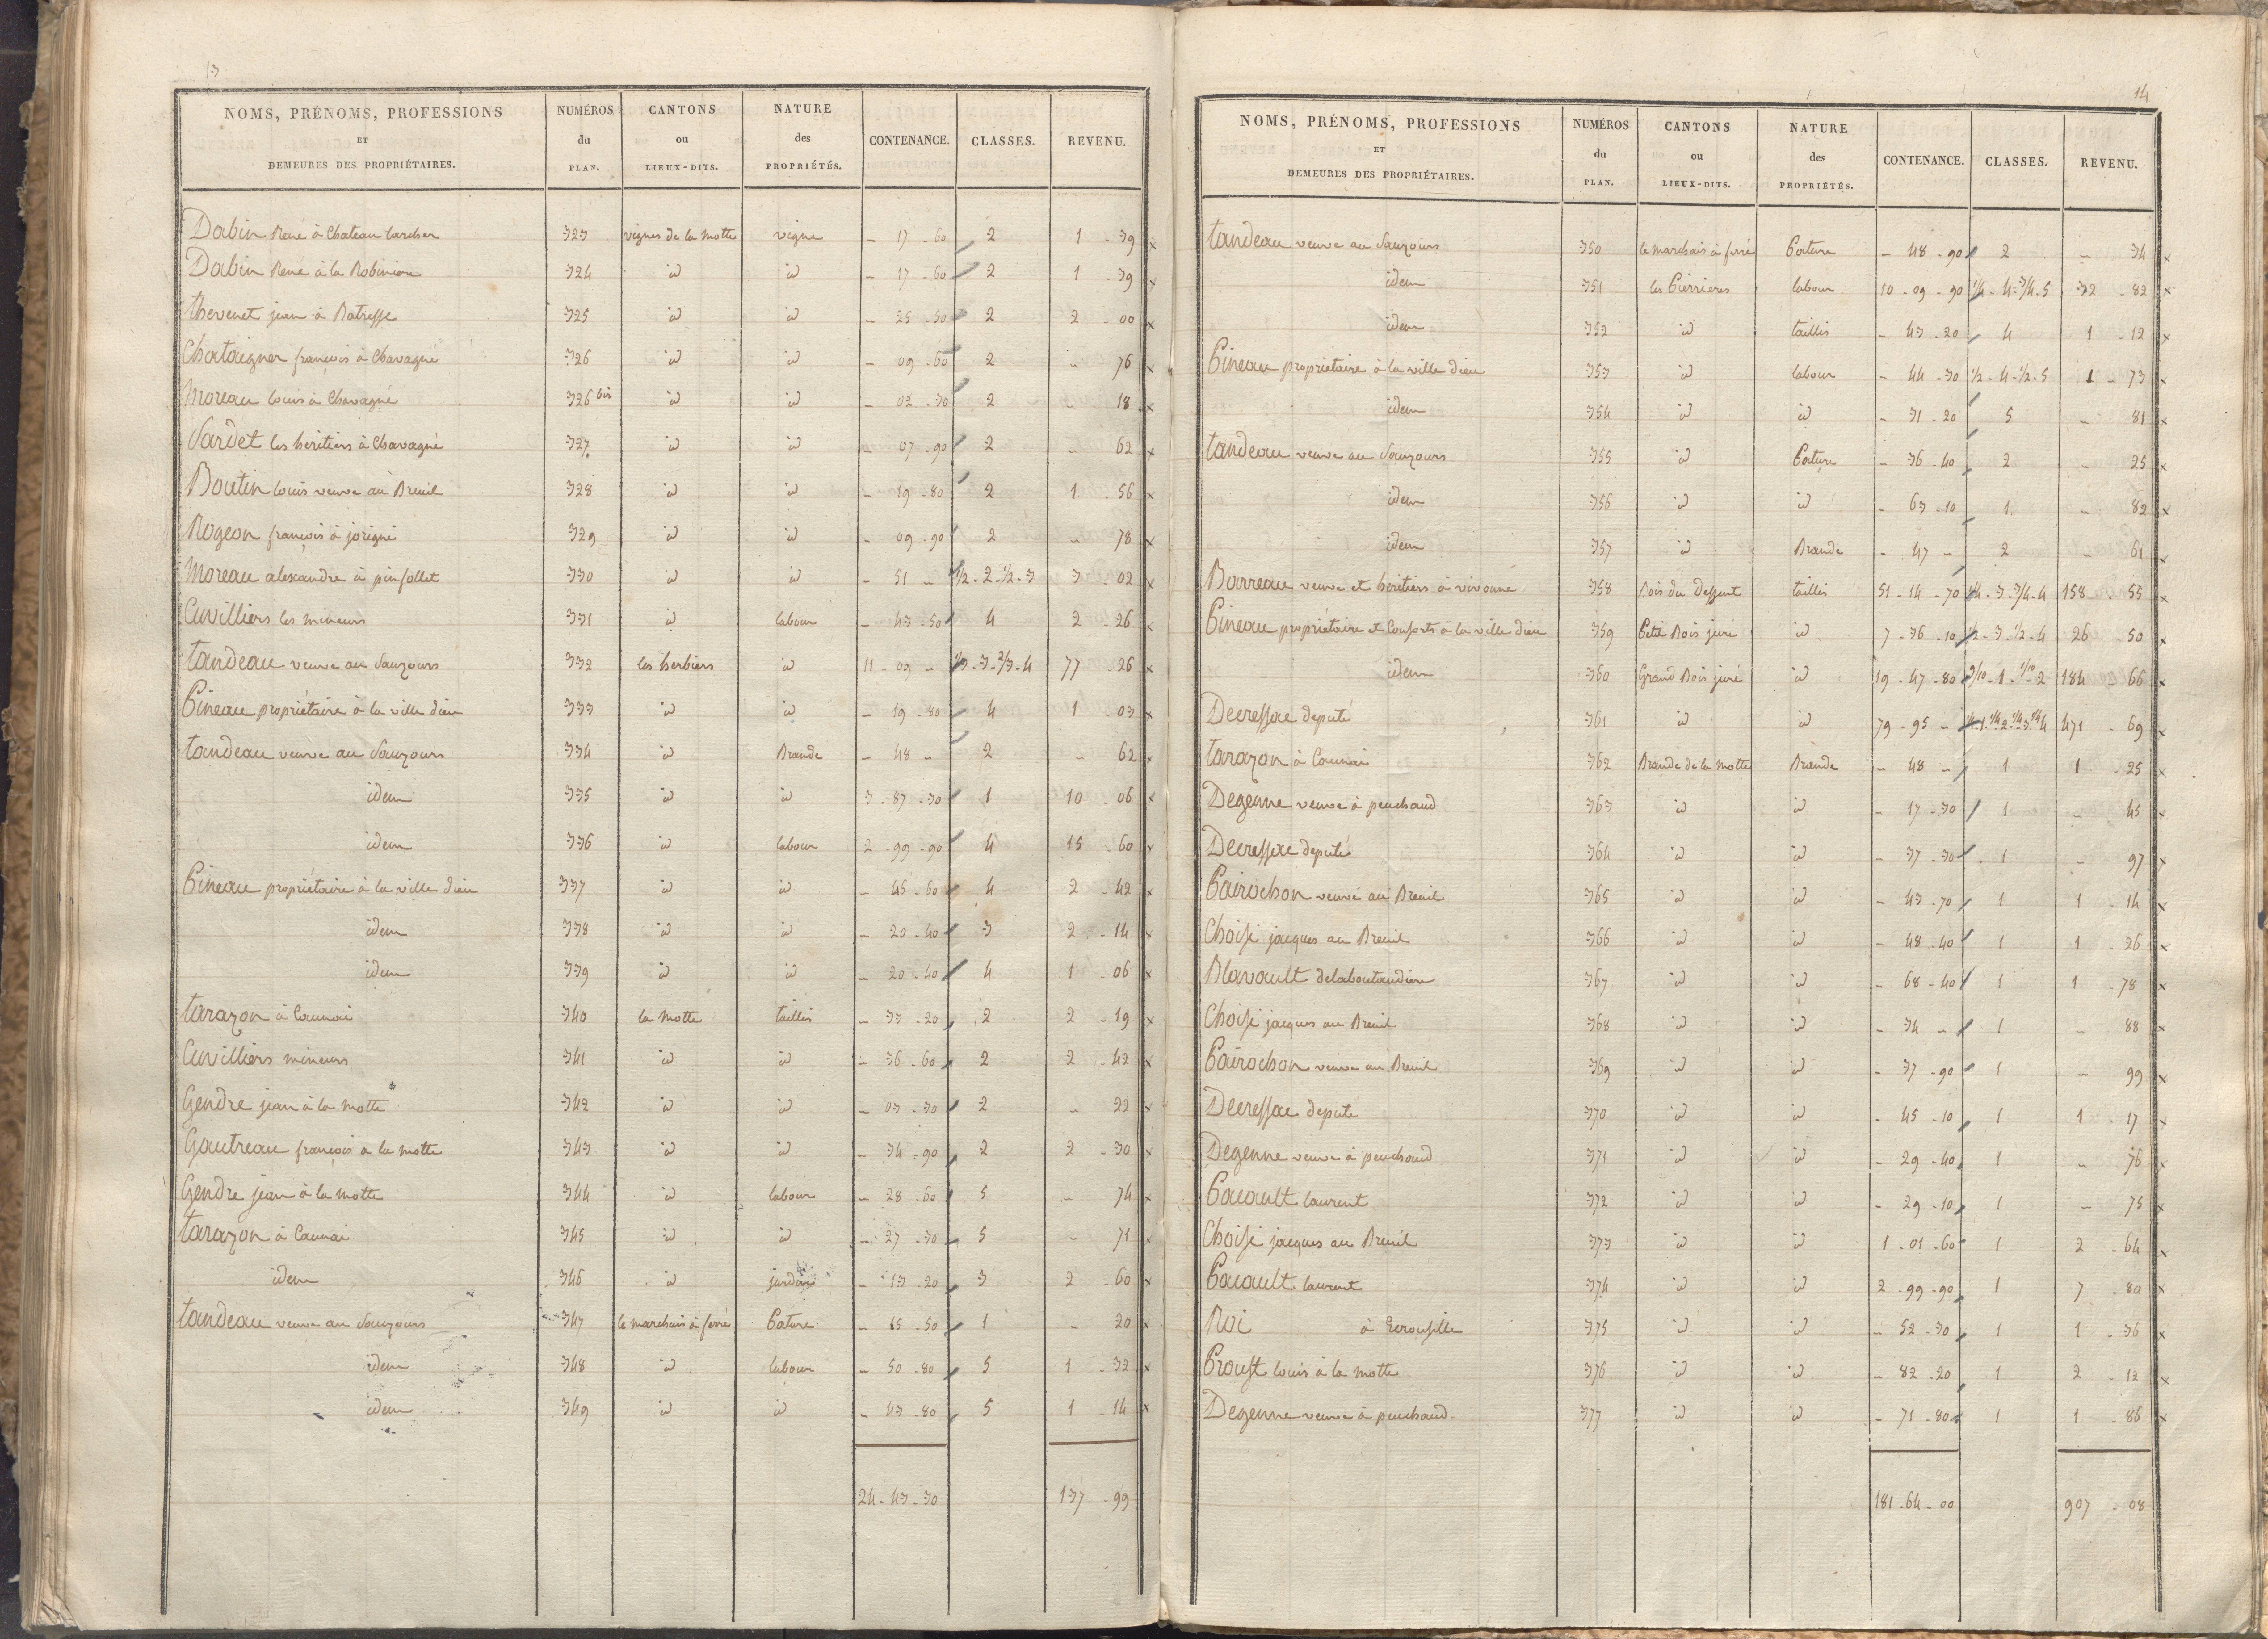 13
NOMS, PRÉNOMS, PROFESSIONS ET DEMEURES DES PROPRIÉTAIRES. | NUMÉROS du PLAN. | CANTONS ou LIEUX-DITS. | NATURE des PROPRIÉTÉS. | CONTENANCE. | CLASSES. | REVENU.
Dabin René à Chateau larcher 323 vignes de la motte vigne - 17 - 60 2 1 - 39 x
Dabin René à la Robinion 324 id id - 17 - 60 2 1 - 39 x
thevenet jean à Batresse 325 id id - 25 - 30 2 2 - 00 x
Chataigner françois à Chavagné 326 id id - 09 - 60 2 - 76 x
Moreau louis à Chavagné 326 bis id id - 02 - 30 2 - 18 x
Sardet les heritiers à Chavagné 327 id id - 07 - 90 2 - 62 x
Boutin louis veuve au Breuil 328 id id - 19 - 80 2 1 - 56 x
Rogeon françois à jorigné 329 id id - 09 - 90 2 - 78 x
Moreau alexandre à pinfollet 330 id id - 51 - 1/2 - 2 - 1/2 - 3 3 - 02 x
Cuvilliers les mineurs 331 id labour - 43 - 50 4 2 - 26 x
tandeau veuve au Sauzours 332 les herbiers id 11 - 09 - 1/3 - 3 - 2/3 - 4 77 - 26 x
Pineau propriétaire à la ville dieu 333 id id - 19 - 80 4 1 - 03 x
tandeau veuve au Sauzours 334 id Brande - 48 - 2 - 62 x
idem 335 id id 3 - 87 - 30 1 10 - 06 x
idem 336 id labour 2 - 99 - 90 4 15 - 60 x
Pineau propriétaire à la ville dieu 337 id id - 46 - 60 4 2 - 42 x
idem 338 id id - 20 - 40 3 2 - 14 x
idem 339 id id - 20 - 40 4 1 - 06 x
tarazon à Caunai 340 la motte taillis - 33 - 20 2 2 - 19 x
Cuvilliers mineurs 341 id id - 36 - 60 2 2 - 42 x
Gendre jean à la motte 342 id id - 03 - 30 2 - 22 x
Gautreau françois à la motte 343 id id - 34 - 90 2 2 - 30 x
Gendre jean à la motte 344 id labour - 28 - 60 5 - 74 x
tarazon à Caunai 345 id id - 27 - 30 5 - 71 x
idem 346 id jardin - 13 - 20 3 2 - 60 x
tandeau veuve au Sauzours 347 le marchais à ferré Pature - 65 - 50 1 - 20 x
idem 348 id labour - 50 - 80 5 1 - 32 x
idem 349 id id - 43 - 80 5 1 - 14 x
24 - 43 - 30 137 - 99
14
NOMS, PRÉNOMS, PROFESSIONS ET DEMEURES DES PROPRIÉTAIRES. | NUMÉROS du PLAN. | CANTONS ou LIEUX-DITS. | NATURE des PROPRIÉTÉS. | CONTENANCE. | CLASSES. | REVENU.
tandeau veuve au Sauzours 350 le marchais à ferré Pature - 48 - 90 2 - 34 x
idem 351 les Pierrieres labour 10 - 09 - 90 1/4 - 4 - 3/4 - 5 32 - 82 x
idem 352 id taillis - 43 - 20 4 1 - 12 x
Pineau propriétaire à la ville dieu 353 id labour - 44 - 30 1/2 - 4 - 1/2 - 5 1 - 73 x
idem 354 id id - 31 - 20 5 - 81 x
tandeau veuve au Sauzours 355 id Pature - 36 - 40 2 - 25 x
idem 356 id id - 63 - 10 1 - 82 x
idem 357 id Brande - 47 - 2 - 61 x
Barreau veuve et heritiers à vivonne 358 Bois du Deffent taillis 51 - 14 - 70 1/4 - 3 - 3/4 - 4 158 - 55 x
Pineau propriétaire et Consorts à la ville dieu 359 Petit Bois juré id 7 - 36 - 10 1/2 - 3 - 1/2 - 4 26 - 50 x
idem 360 Grand Bois juré id 19 - 47 - 80 9/10 - 1 - 1/10 - 2 184 - 66 x
Decressac deputé 361 id id 79 - 95 - 1/4 - 1 - 1/4 - 2 - 1/4 - 3 - 1/4 4 471 - 69 x
tarazon à Caunai 362 Brande de la motte Brande - 48 - 1 1 - 25 x
Degenne veuve à peuchaud 363 id id - 17 - 30 1 - 45 x
Decressac deputé 364 id id - 37 - 30 1 - 97 x
Pairochon veuve au Breuil 365 id id - 43 - 70 1 1 - 14 x
Choisi jacques au Breuil 366 id id - 48 - 40 1 1 - 26 x
Blavault delaboutaudiere 367 id id - 68 - 40 1 1 - 78 x
Choisi jacques au Breuil 368 id id - 34 - 1 - 88 x
Pairochon veuve au Breuil 369 id id - 37 - 90 1 - 99 x
Decressac deputé 370 id id - 45 - 10 1 1 - 17 x
Degenne veuve à peuchaud 371 id id - 29 - 40 1 - 76 x
Pacault laurent 372 id id - 29 - 10 1 - 75 x
Choisi jacques au Breuil 373 id id 1 - 01 - 60 1 2 - 64 x
Pacault laurent 374 id id 2 - 99 - 90 1 7 - 80 x
Roi à 375 id id - 52 - 30 1 1 - 36 x
Proust louis à la motte 376 id id - 82 - 20 1 2 - 12 x
Degenne veuve à peuchaud 377 id id - 71 - 80 1 1 - 86 x
181 - 64 - 00 907 - 08